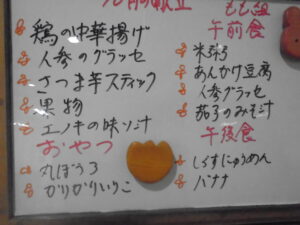 鶏の中華揚げ
人参のグラッセ
さつま芋スティック
果物
エノキの味ソ汁
おやつ
丸ぼうろ
かりかりいりこ
もも組
午前食
米粥
あんかけ豆腐
人参グラッセ
茄子のみそ汁
午後食
しらすにゅうめん
バナナ